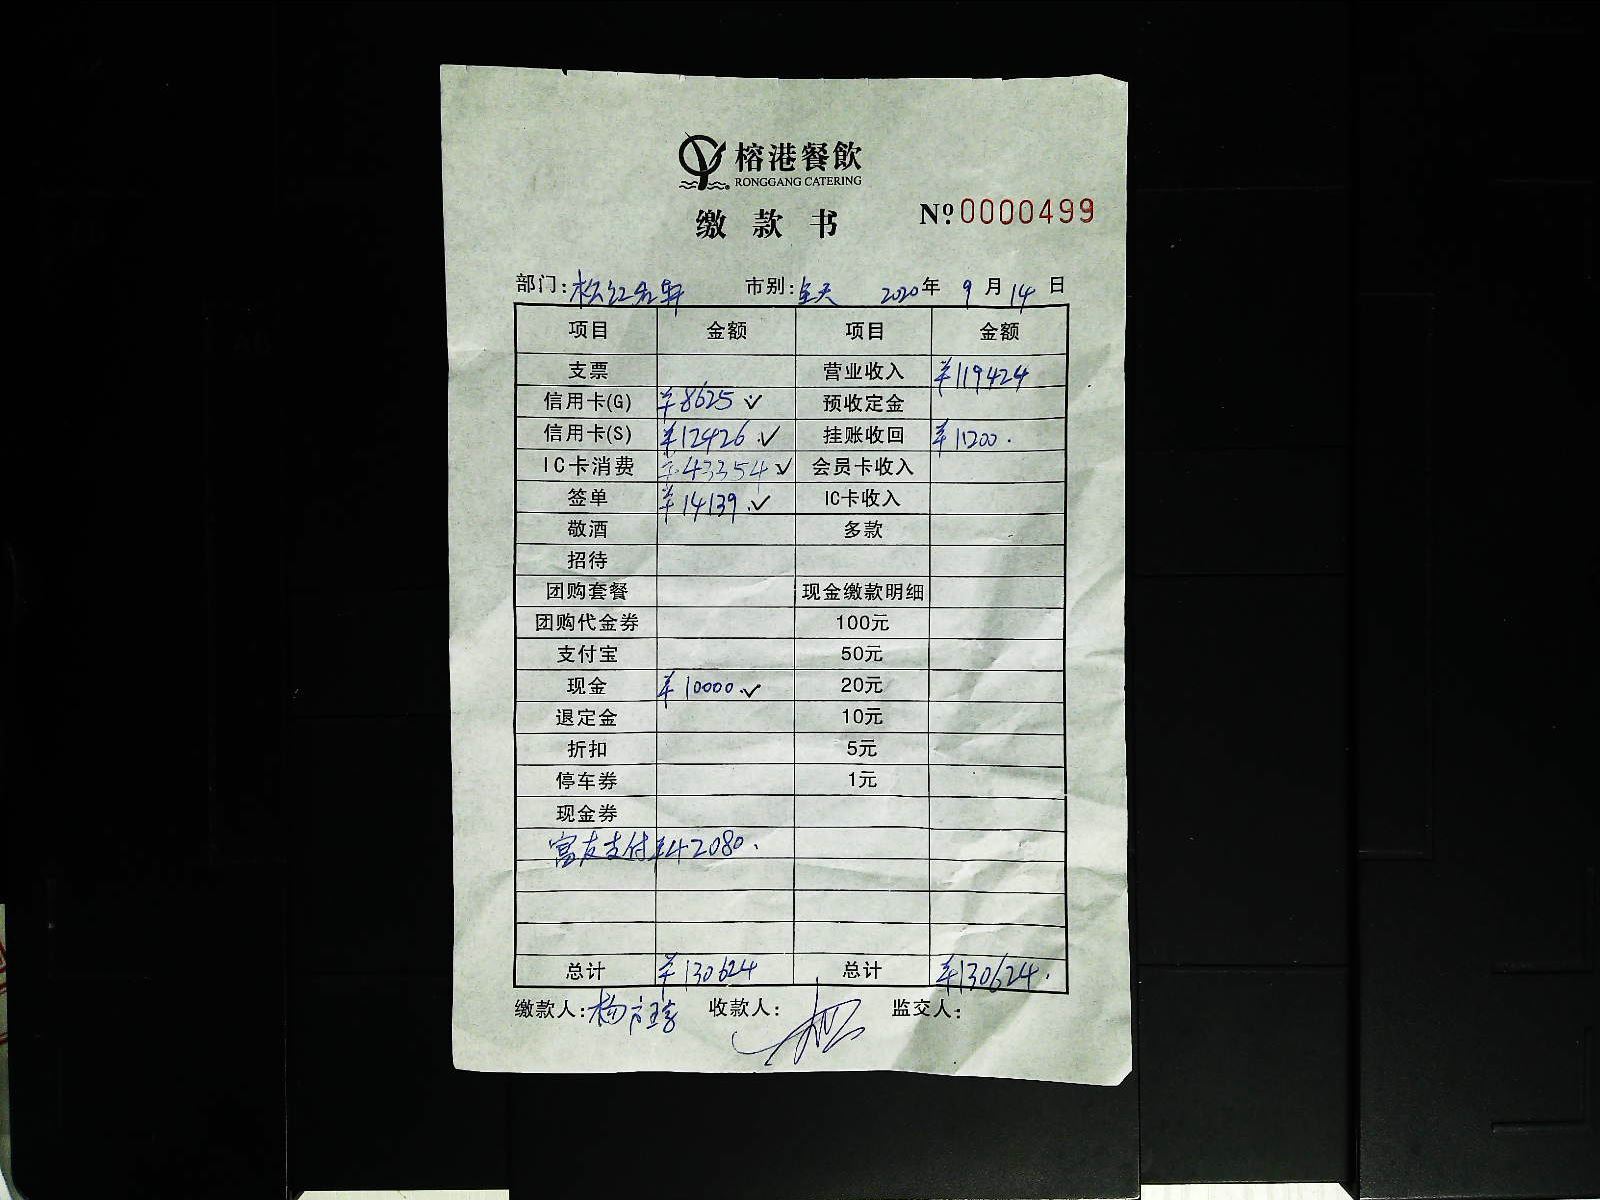 榕港餐飲
RONGGANG CATERING
缴款书 №0000499
部门: 松江名轩 市别: 全天 2020年 9月 14日
项目 金额 项目 金额
支票 营业收入 ¥119424
信用卡(G) ¥8625 ✓ 预收定金
信用卡(S) ¥12426 ✓ 挂账收回 ¥11200.
IC卡消费 ¥43354 ✓ 会员卡收入
签单 ¥14139. ✓ IC卡收入
敬酒 多款
招待
团购套餐 现金缴款明细
团购代金券 100元
支付宝 50元
现金 ¥10000. ✓ 20元
退定金 10元
折扣 5元
停车券 1元
现金券
富友支付 ¥42080.
总计 ¥130624 总计 ¥130624.
缴款人: 杨 收款人: 监交人: